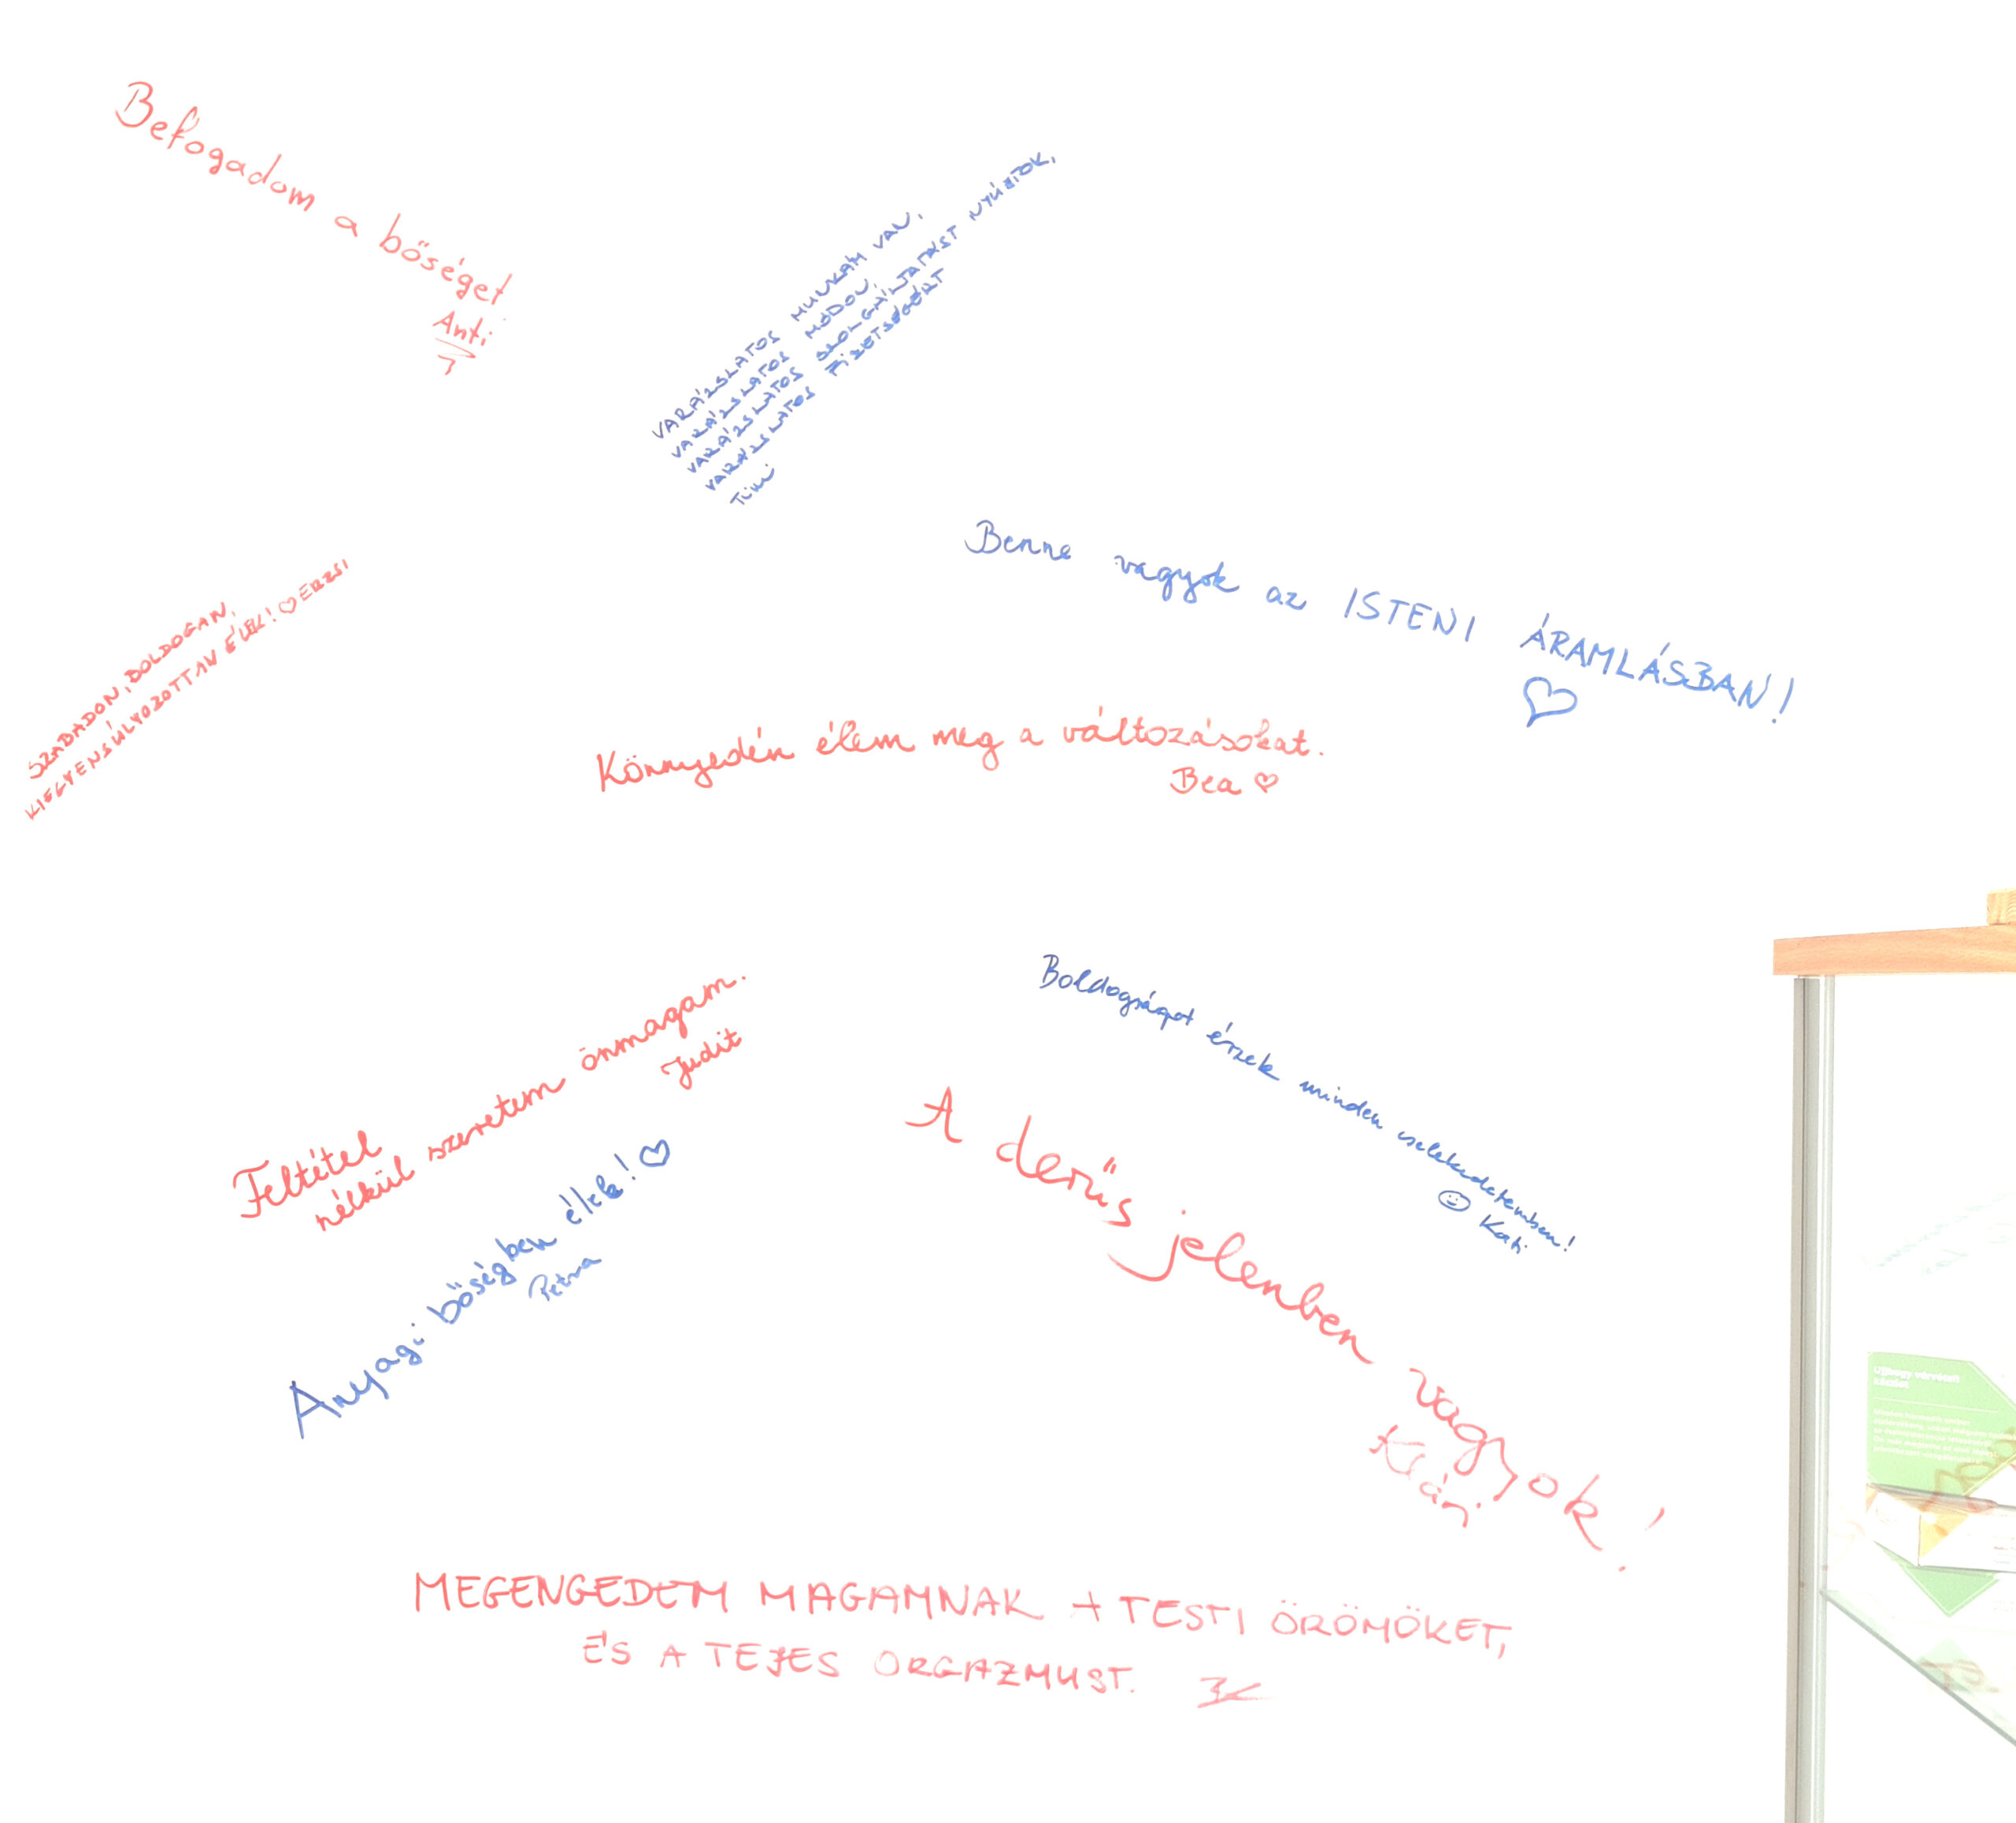 Befogadom a bőséget
Anti
VARÁZSLATOS MUNKÁM VAN,
VARÁZSLATOS MÓDON,
VARÁZSLATOS SZOLGÁLTATÁST NYÚJTOK,
VARÁZSLATOS FIZETSÉGÉRT
Timi
Benne vagyok az ISTENI ÁRAMLÁSBAN!
SZABADON, BOLDOGAN,
KIEGYENSÚLYOZOTTAN ÉLEK! ERZSI
Könnyedén élem meg a változásokat.
Bea
Feltétel
nélkül szeretem önmagam.
Judit
Boldogságot érzek minden cselekedetemben!
Kati
Anyagi bőségben élek!
Petra
A derűs jelenben vagyok!
Klári
MEGENGEDEM MAGAMNAK A TESTI ÖRÖMÖKET,
ÉS A TEJES ORGAZMUST.